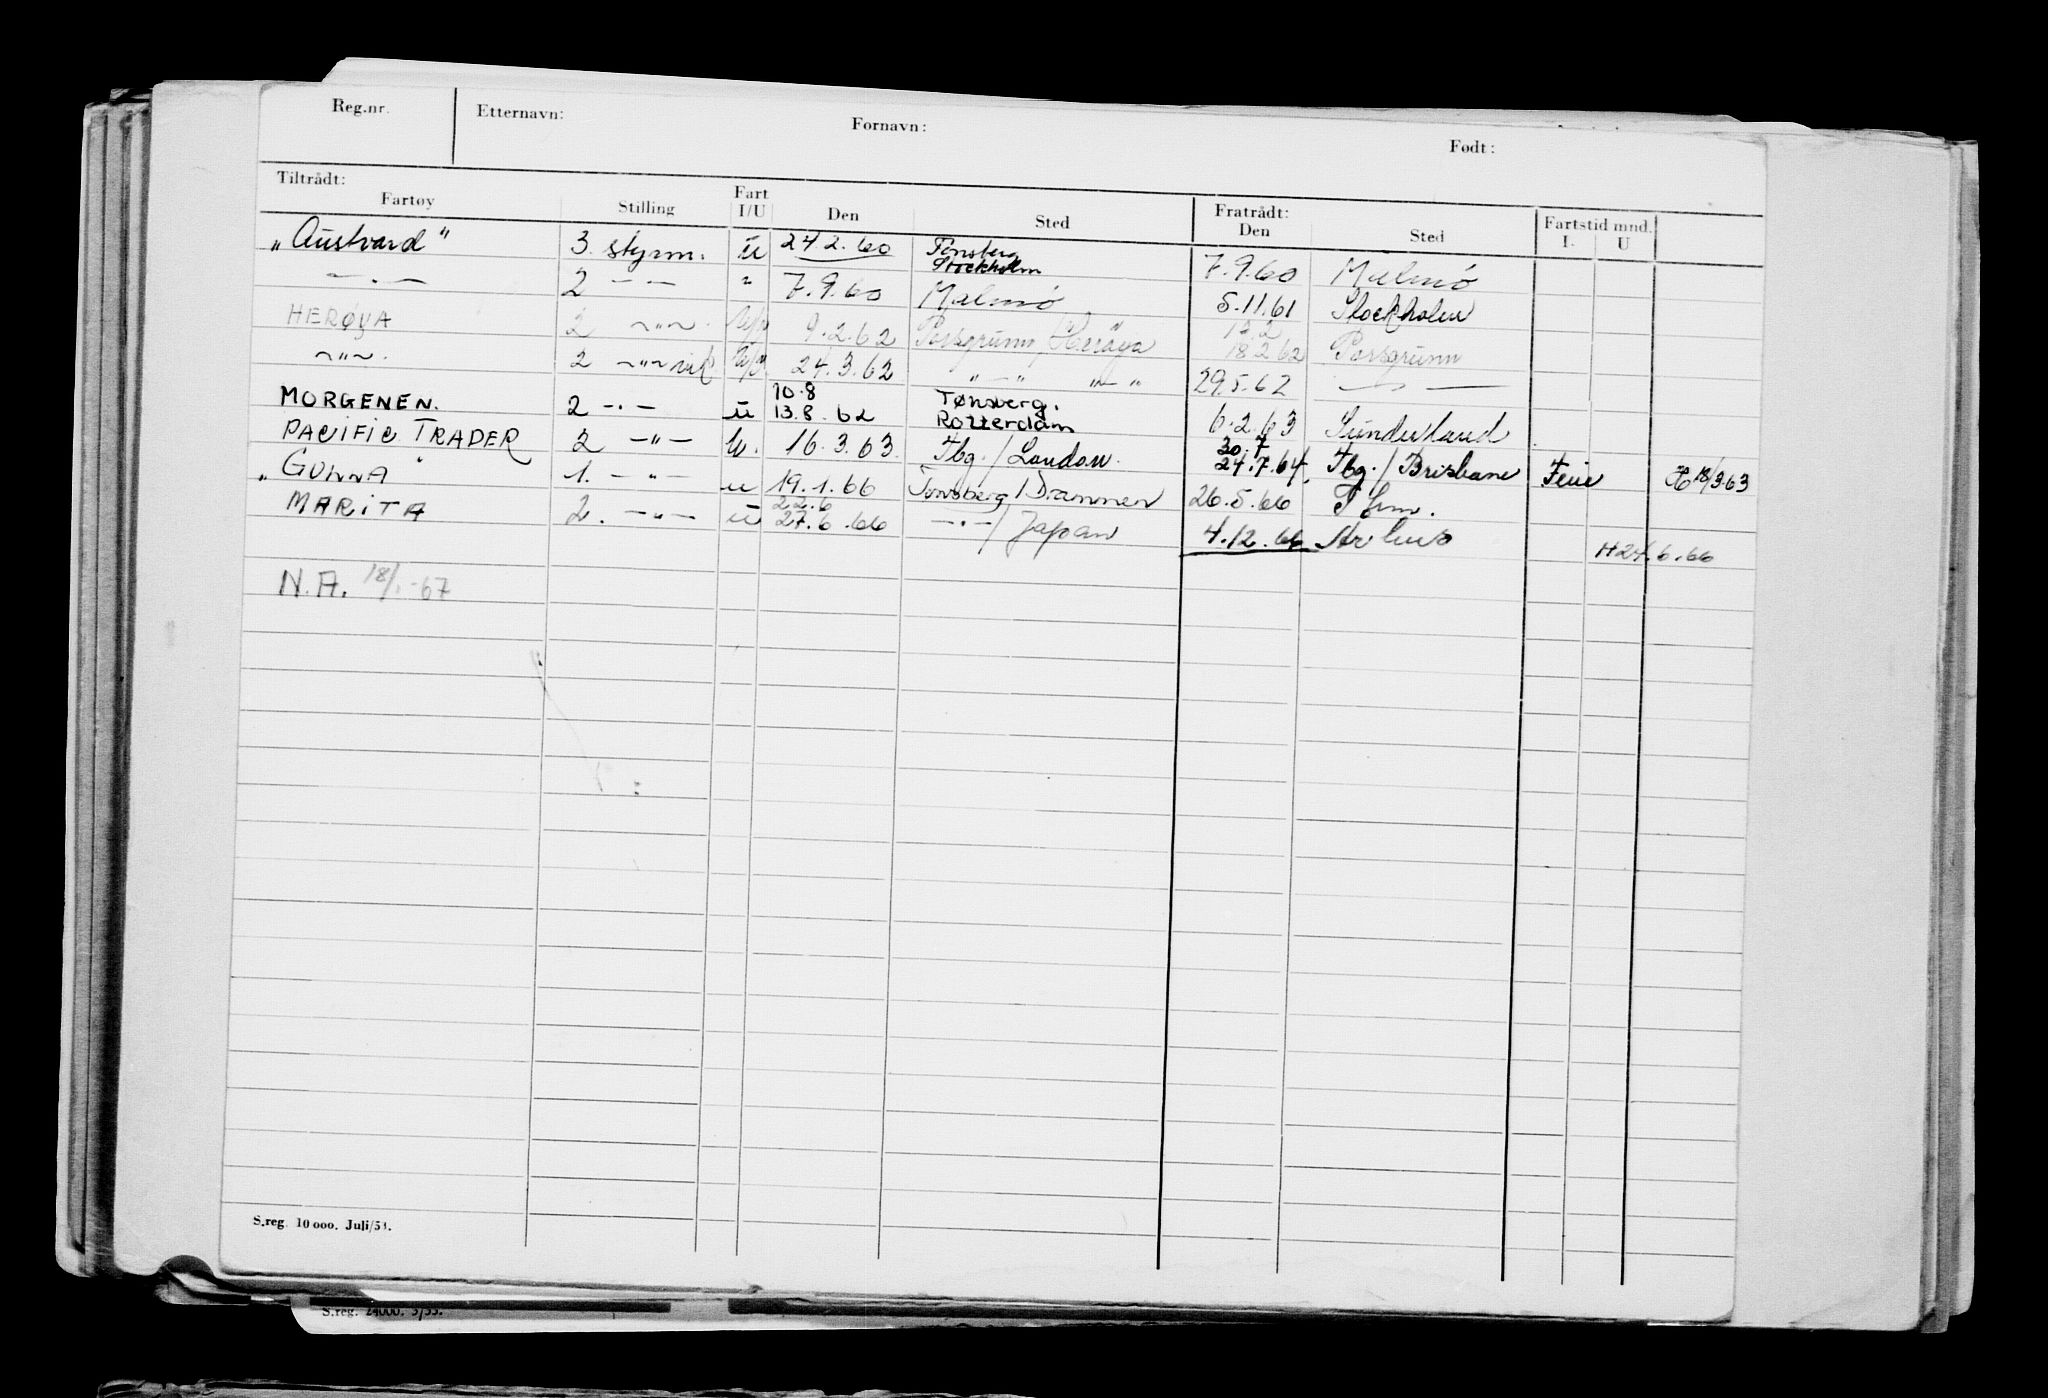 Reg.nr. Etternavn: Fornavn: Født:
Tiltrådt: Fratrådt: Fartstid mnd.
Fartøy Stilling Fart I/U Den Sted Den Sted I. U
„Austvard" 3. styrm. u 24.2.60 Tønsberg Stockholm 7.9.60 Malmö
—„— 2 —„— " 7.9.60 Malmö 5.11.61 Stockholm
HERØYA 2 ~„~. 9.2.62 Porsgrunn/Herøya 18.2.62 Porsgrunn
~„~. 2 ~„~ vik 24.3.62 „—„ „—„ 29.5.62 —„—
MORGENEN. 2 —„— u 10.8 13.8.62 Tønsberg. Rotterdam 6.2.63 Sunderland
PACIFIC TRADER 2 —„— u. 16.3.63 Tbg./London. 30.7 24.7.64. Tbg./Brisbane Ferie H 18/3.63
„GUNNA" 1. —„— u 19.1.66 Tønsberg/Drammen 26.5.66
MARITA 2. —„— u 22.6 27.6.66 —„—/Japan 4.12.66 Århus H 24.6.66
N.A. 18/1-67
S.reg. 10 000. Juli/54.
S.reg. 24000. 3/53.